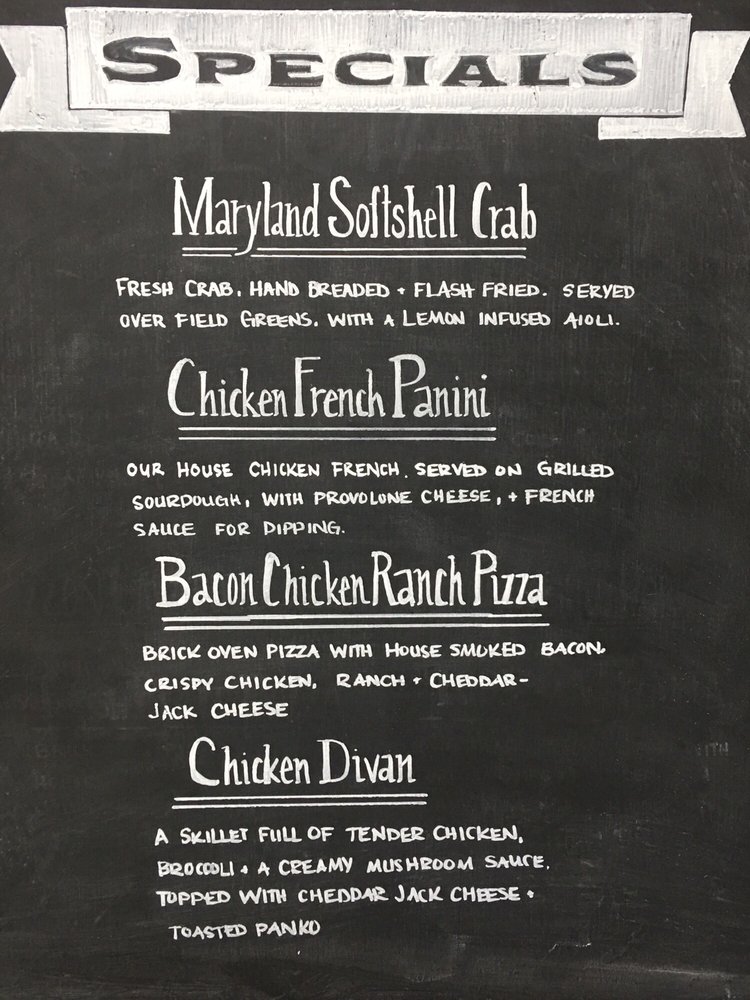 SPECIALS
Maryland Softshell Crab
FRESH CRAB, HAND BREADED + FLASH FRIED. SERVED
OVER FIELD GREENS, WITH A LEMON INFUSED AIOLI.
Chicken French Panini
OUR HOUSE CHICKEN FRENCH, SERVED ON GRILLED
SOURDOUGH, WITH PROVOLONE CHEESE, + FRENCH
SAUCE FOR DIPPING.
Bacon Chicken Ranch Pizza
BRICK OVEN PIZZA WITH HOUSE SMOKED BACON,
CRISPY CHICKEN, RANCH + CHEDDAR-
JACK CHEESE
Chicken Divan
A SKILLET FULL OF TENDER CHICKEN,
BROCCOLI + A CREAMY MUSHROOM SAUCE,
TOPPED WITH CHEDDAR JACK CHEESE +
TOASTED PANKO